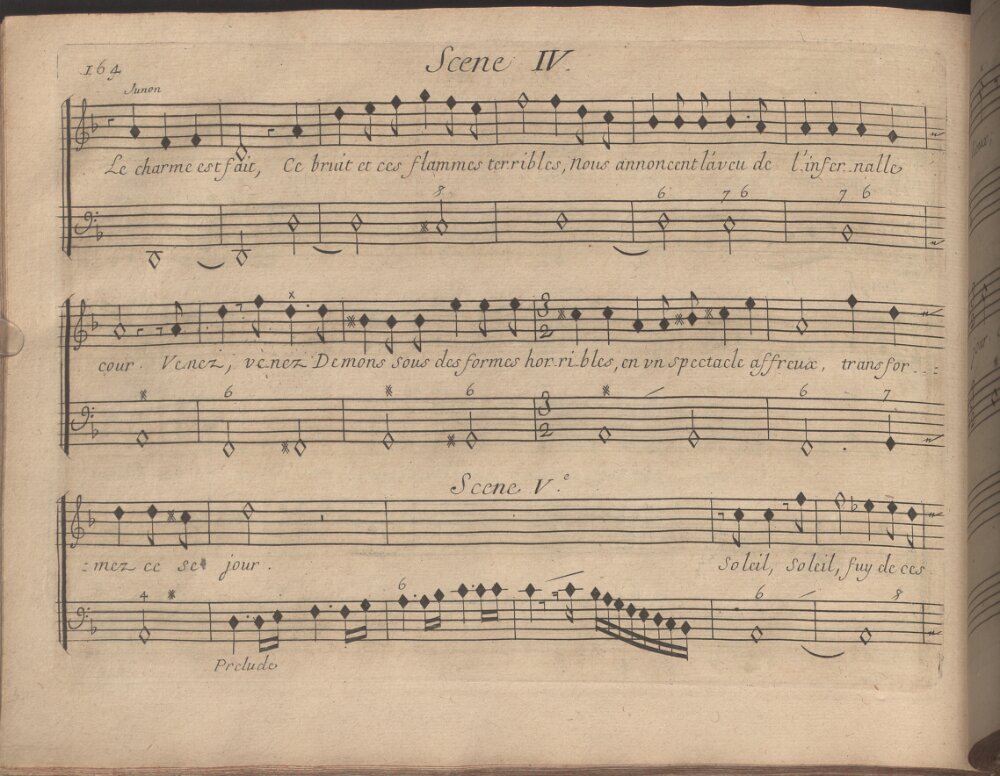 164
Scene IV.
Junon
Le charme est fait, Ce bruit et ces flammes terribles, Nous annoncent l'aveu de l'infer..nalle
8 6 7 6 7 6
cour. Venez, venez Demons sous des formes hor.ri.bles, en vn spectacle affreux, transfor...:
6 6 7
3 2
3 2
Scene V.e
:mez ce se jour. Soleil, Soleil, fuy de ces
4 6 6 8
Prelude